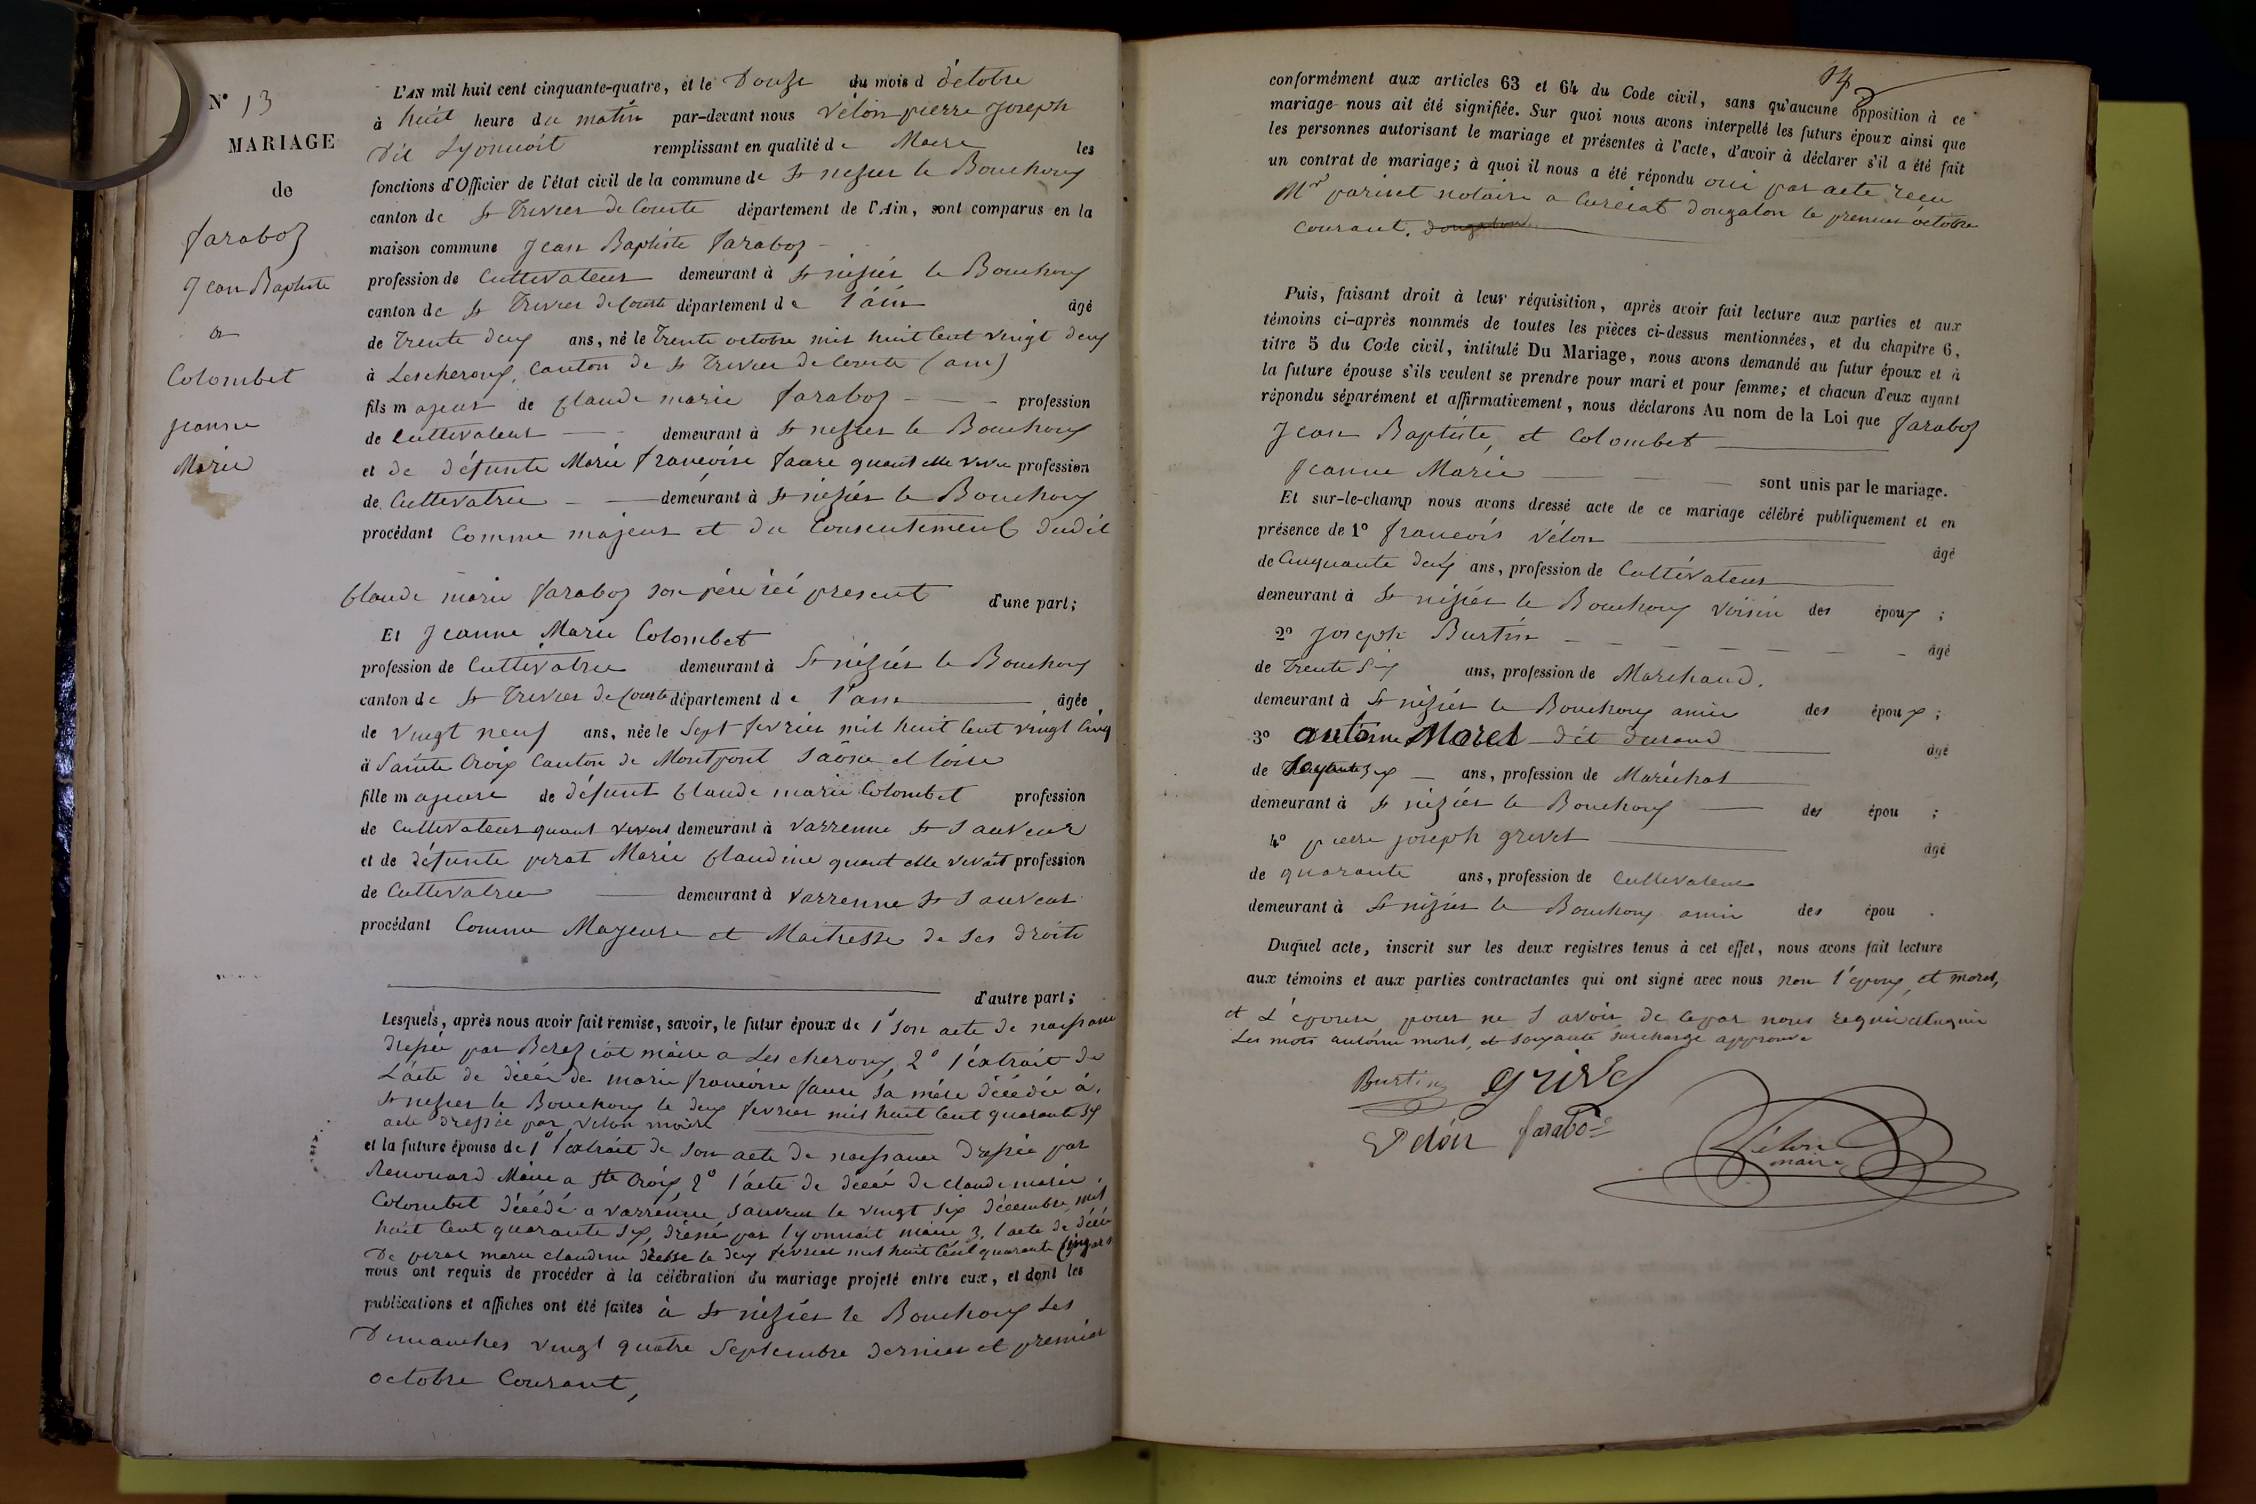 N° 13
MARIAGE
de
faraboz
Jean Baptiste
&
Colombet
jeanne
Marie
L'AN mil huit cent cinquante-quatre, et le Douze du mois d'octobre
à huit heure du matin par-devant nous Vélon pierre joseph
Dit Lyonnoit remplissant en qualité de Maire les
fonctions d'Officier de l'état civil de la commune de St nizier le Bouchoux
canton de St Trivier de Courte département de l'Ain, sont comparus en la
maison commune Jean Baptiste faraboz
profession de Cultivateur demeurant à St nizier le Bouchoux
canton de St Trivier de Courte département de l'ain âgé
de Trente deux ans, né le Trente octobre mil huit Cent vingt deux
à Lescheroux, Canton de St Trivier de Courte (ain)
fils majeur de Claude marie faraboz profession
de Cultivateur demeurant à St nizier le Bouchoux
et de défunte Marie françoise faure quant elle vivai profession
de Cultivatrice demeurant à St nizier le Bouchoux
procédant Comme majeur et du Consentement dudit
Claude marie faraboz son père ici présent d'une part;
Et Jeanne Marie Colombet
profession de Cultivatrice demeurant à St nizier le Bouchoux
canton de St Trivier de Courte département de l'ain âgée
de vingt neuf ans, née le Sept fevrier mil huit Cent vingt Cinq
à Sainte Croix Canton de Montpont Saône et loire
fille majeure de défunt Claude marie Colombet profession
de Cultivateur quant vivait demeurant à varrenne St Sauveur
et de défunte perat Marie Claudine quant elle vivait profession
de Cultivatrice demeurant à varrenne St Sauveur
procédant Comme Majeure et Maitresse de ses droits
d'autre part;
Lesquels, après nous avoir fait remise, savoir, le futur époux de 1° Son acte de naissance
dressée par Bereziat maire a Lescheroux, 2° l'extrait de
L'acte de décée de marie françoise faure sa mère décédée à
St nizier le Bouchoux le deux fevrier mil huit Cent quarante six
acte dressée par Velon maire
et la future épouse de 1° l'extrait de Son acte de naissance dressée par
Renouard Maire a Ste Croix, 2° l'acte de décée de claude marie
Colombet décédé a varrenne Sauveur le vingt six décembre mil
huit Cent quarante six, dressé par lyonnait maire 3, l'acte de décée
De perat marie claudine le deux fevrier mil huit Cent quarante
nous ont requis de procéder à la célébration du mariage projeté entre eux, et dont les
publications et affiches ont été faites à St nizier le Bouchoux Les
Dimanches vingt quatre Septembre dernier et premier
octobre Courant,
conformément aux articles 63 et 64 du Code civil, sans qu'aucune opposition à ce
mariage nous ait été signifiée. Sur quoi nous avons interpellé les futurs époux ainsi que
les personnes autorisant le mariage et présentes à l'acte, d'avoir à déclarer s'il a été fait
un contrat de mariage; à quoi il nous a été répondu oui par acte recu
Mr pariset notaire a Curciat dongalon le premier octobre
courant.
Puis, faisant droit à leur réquisition, après avoir fait lecture aux parties et aux
témoins ci-après nommés de toutes les pièces ci-dessus mentionnées, et du chapitre 6,
titre 5 du Code civil, intitulé Du Mariage, nous avons demandé au futur époux et à
la future épouse s'ils veulent se prendre pour mari et pour femme; et chacun d'eux ayant
répondu séparément et affirmativement, nous déclarons Au nom de la Loi que faraboz
Jean Baptiste, et Colombet
Jeanne Marie sont unis par le mariage.
Et sur-le-champ nous avons dressé acte de ce mariage célébré publiquement et en
présence de 1° françois Vélon âgé
de Cinquante deux ans, profession de Cultivateur
demeurant à St nizier le Bouchoux voisin des époux ;
2° Joseph Burtin âgé
de Trente six ans, profession de Marchand.
demeurant à St nizier le Bouchoux amie des époux ;
3° antoine Morel dit durand âgé
de ans, profession de Maréchal
demeurant à St nizier le Bouchoux des épou ;
4° pierre joseph grivet âgé
de quarante ans, profession de Cultivateur
demeurant à St nizier le Bouchoux amie des épou .
Duquel acte, inscrit sur les deux registres tenus à cet effet, nous avons fait lecture
aux témoins et aux parties contractantes qui ont signé avec nous non l'époux, et morel,
et L'épouse pour ne Savoir de ce par nous requis
Les mots antoine morel, et soixante surcharge approuvé
Burtin grivet
Velon faraboz
Vélon
maire